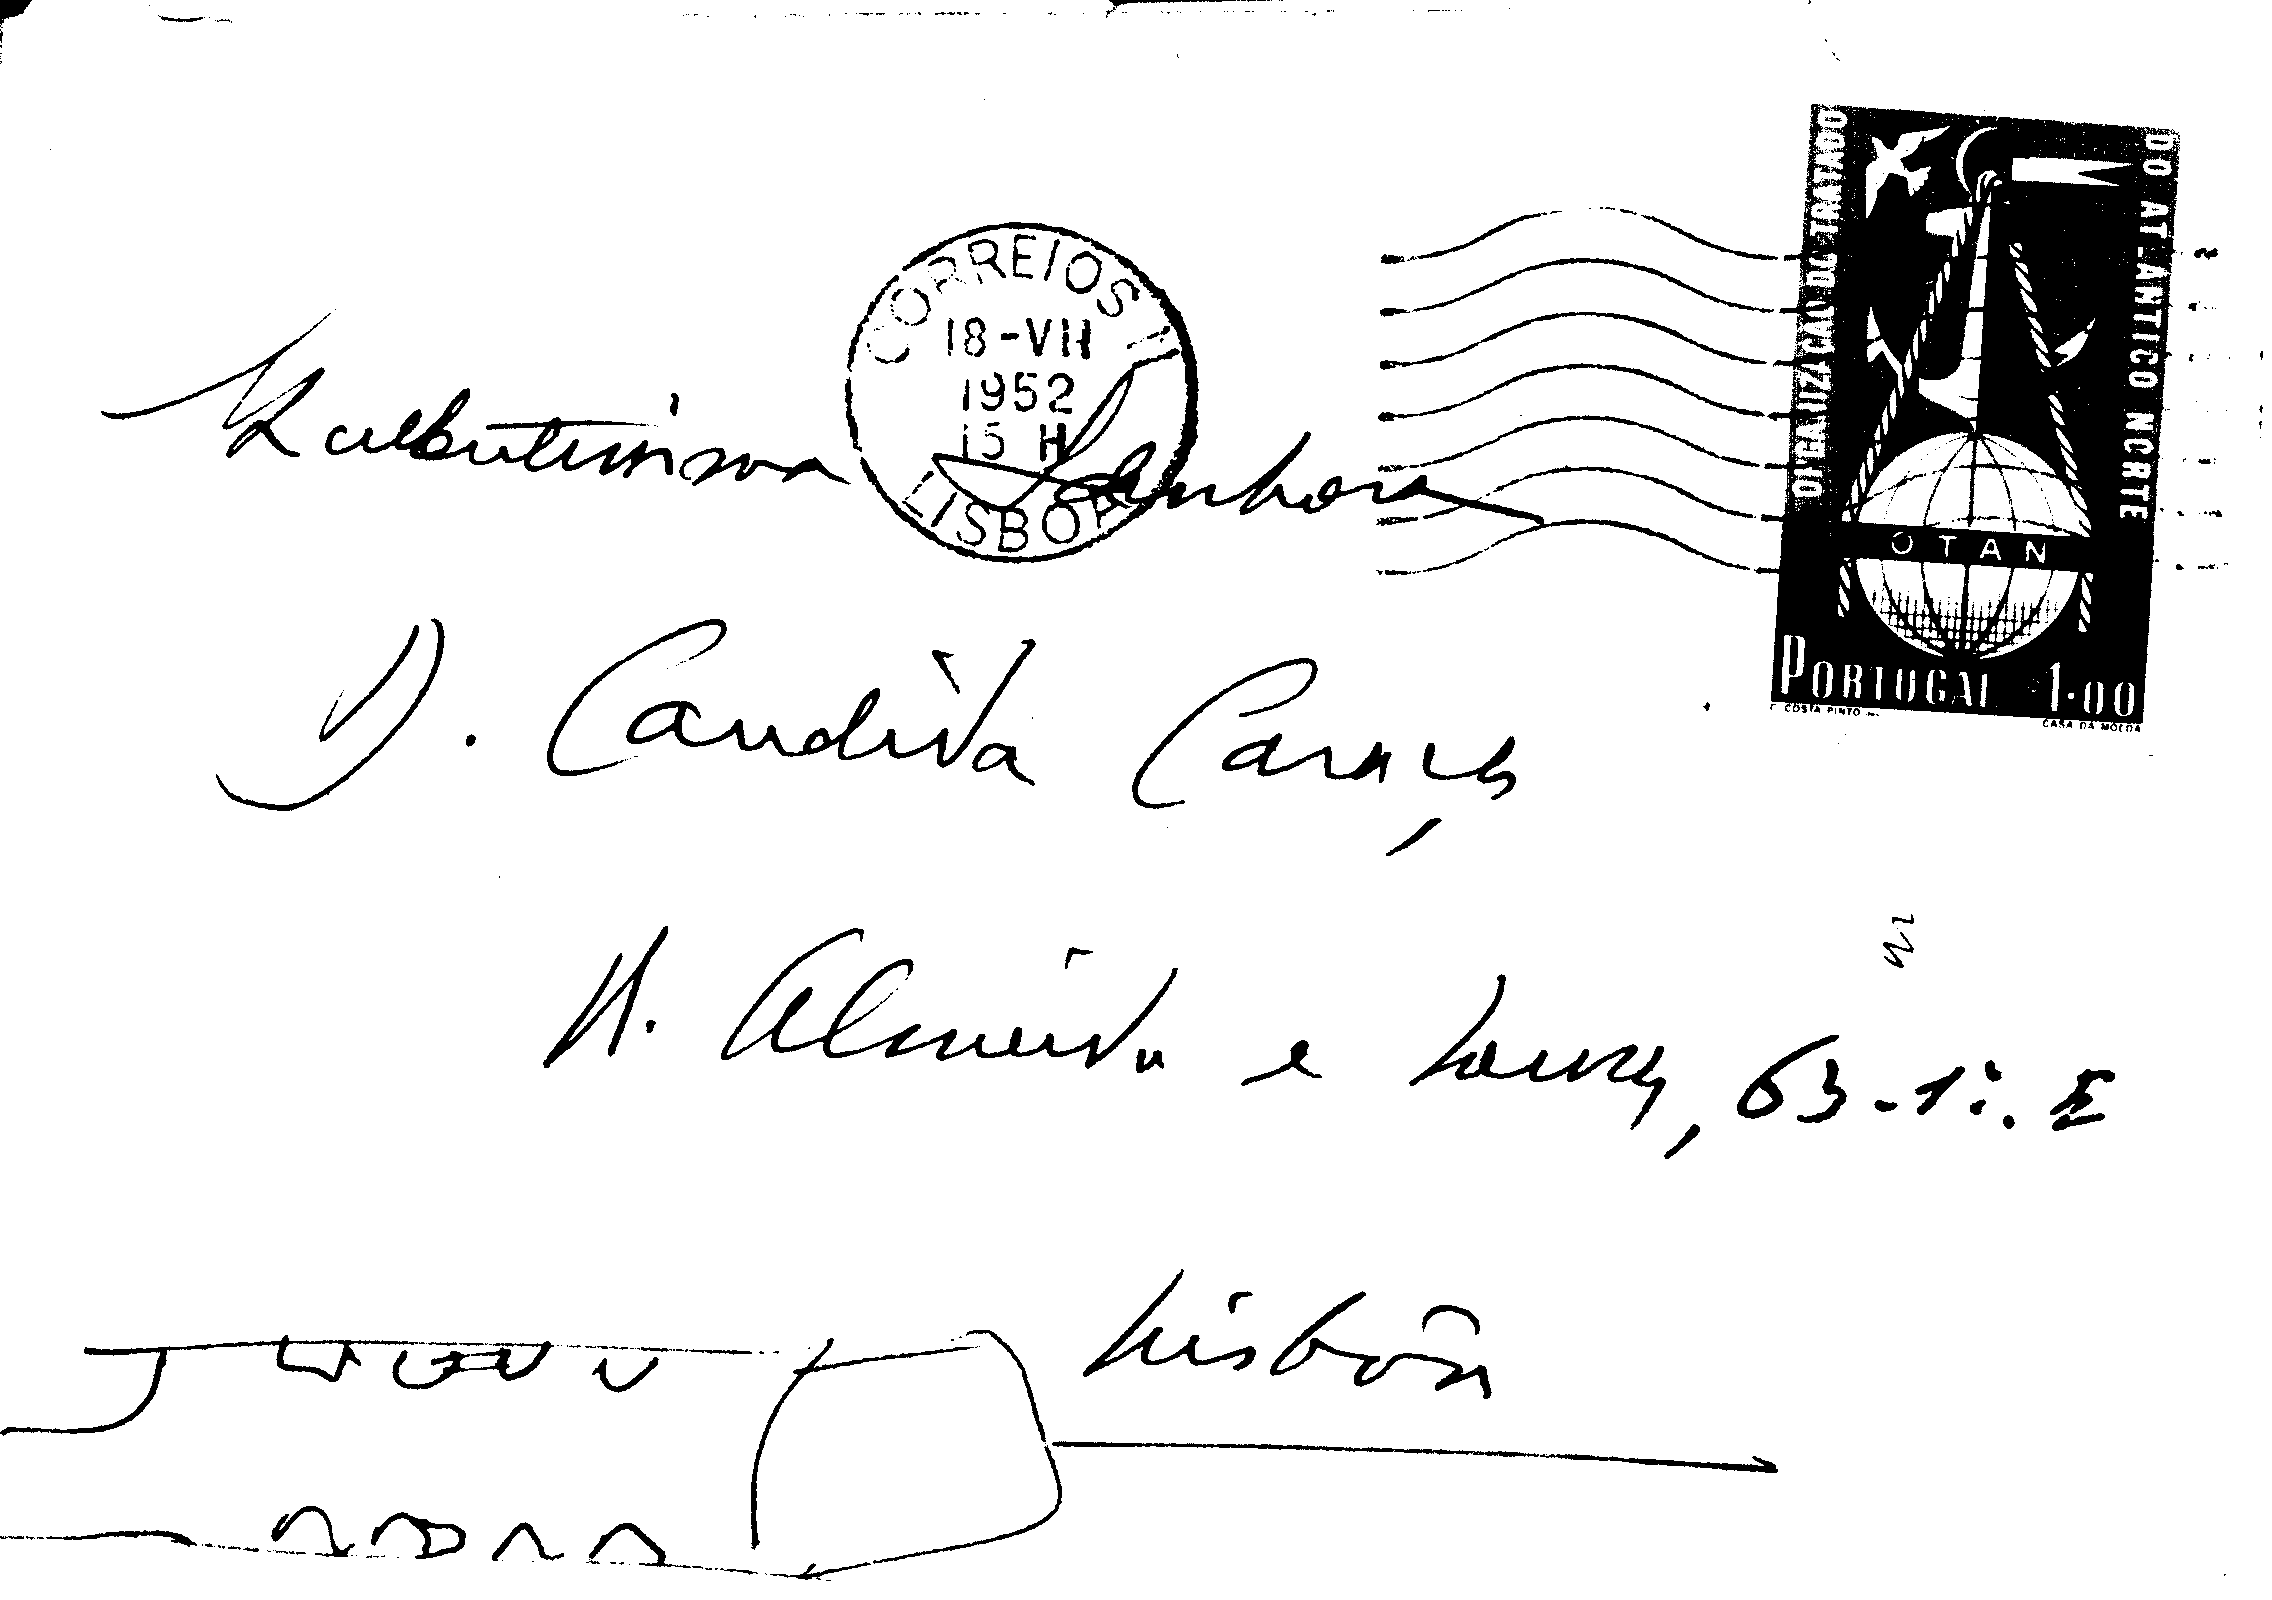 ORGANIZAÇÃO DO TRATADO
DO ATLANTICO NORTE
OTAN
PORTUGAL 1.00
COSTA PINTO
CASA DA MOEDA
CORREIOS
18-VII
1952
15 H
LISBOA
Senhora
D. Candida Caraça
R. Almeida e Sousa, 63-1º. E
Lisbôa